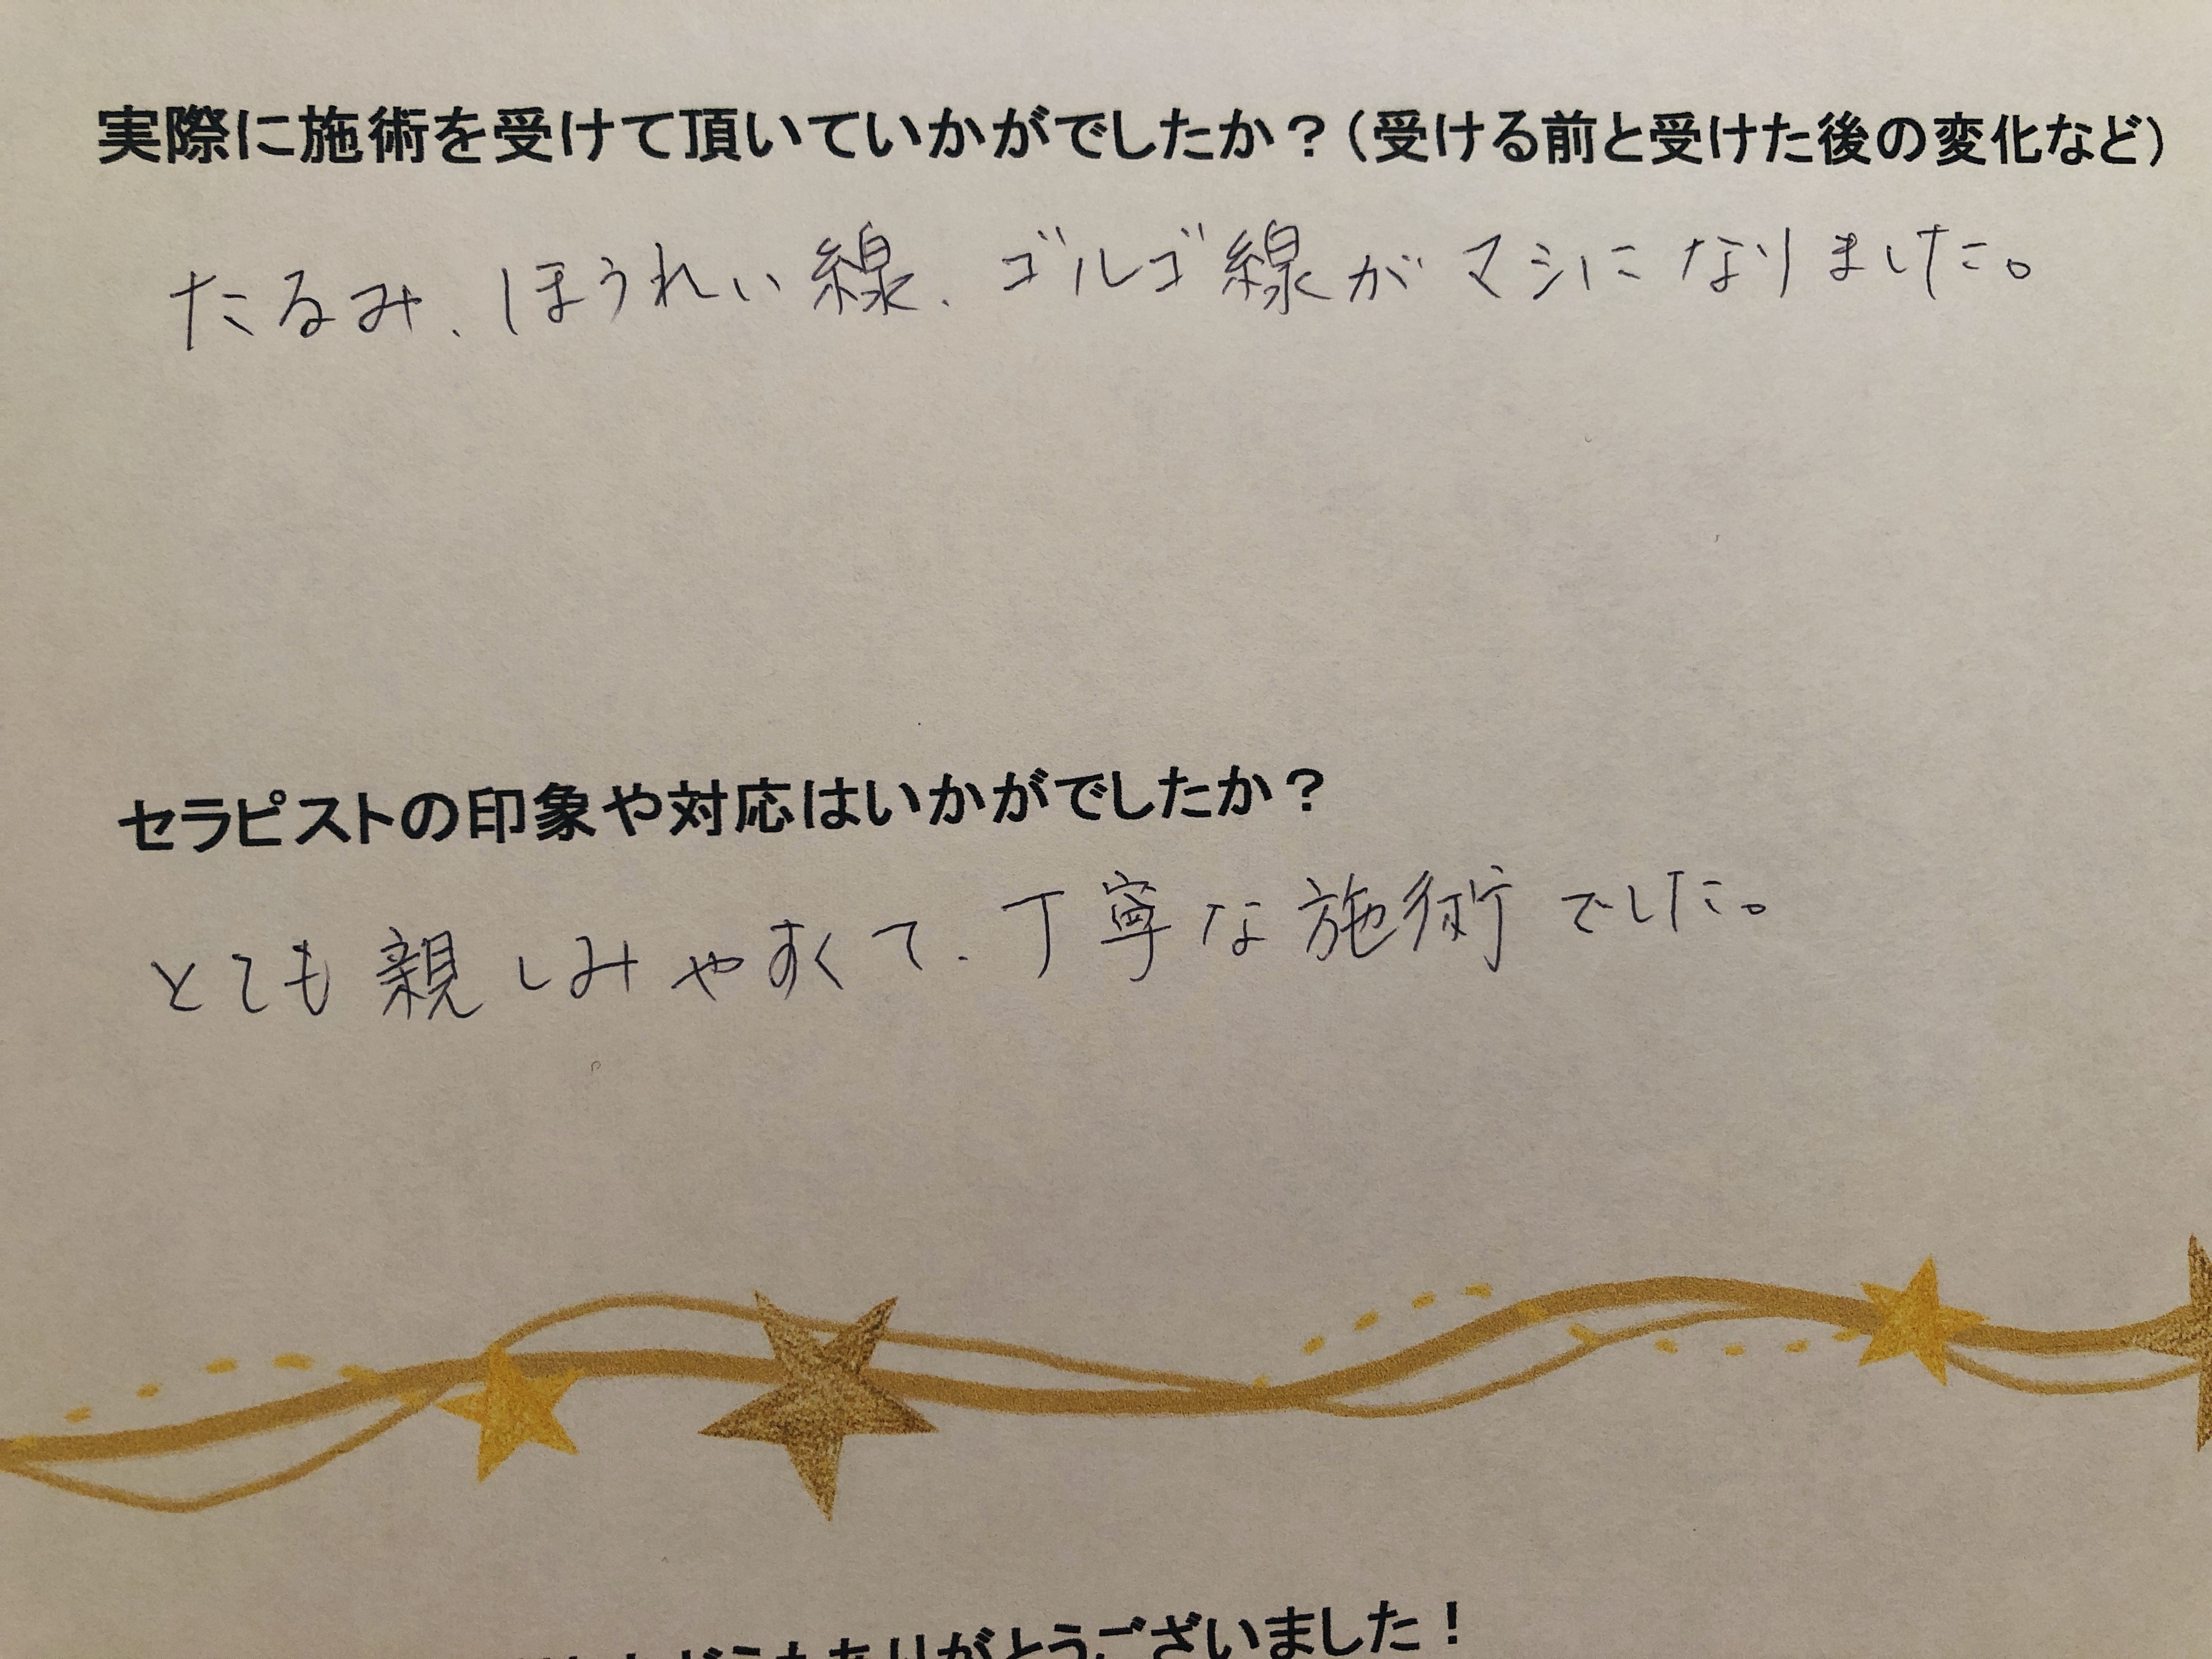 実際に施術を受けて頂いていかがでしたか？（受ける前と受けた後の変化など）
たるみ、ほうれい線、ゴルゴ線がマシになりました。
セラピストの印象や対応はいかがでしたか？
とても親しみやすくて、丁寧な施術でした。
どうもありがとうございました！